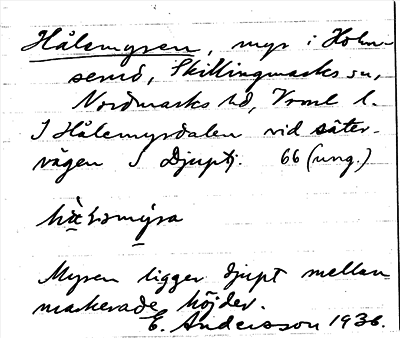 Hålemyren, myr i Holm-
serud, Skillingmarks sn,
Nordmarks hd, Vrml l.
I Hålemyrdalen vid säter-
vägen S Djuptj. 66 (ung.)
Myren ligger djupt mellan
markerade höjder.
E. Andersson 1936.